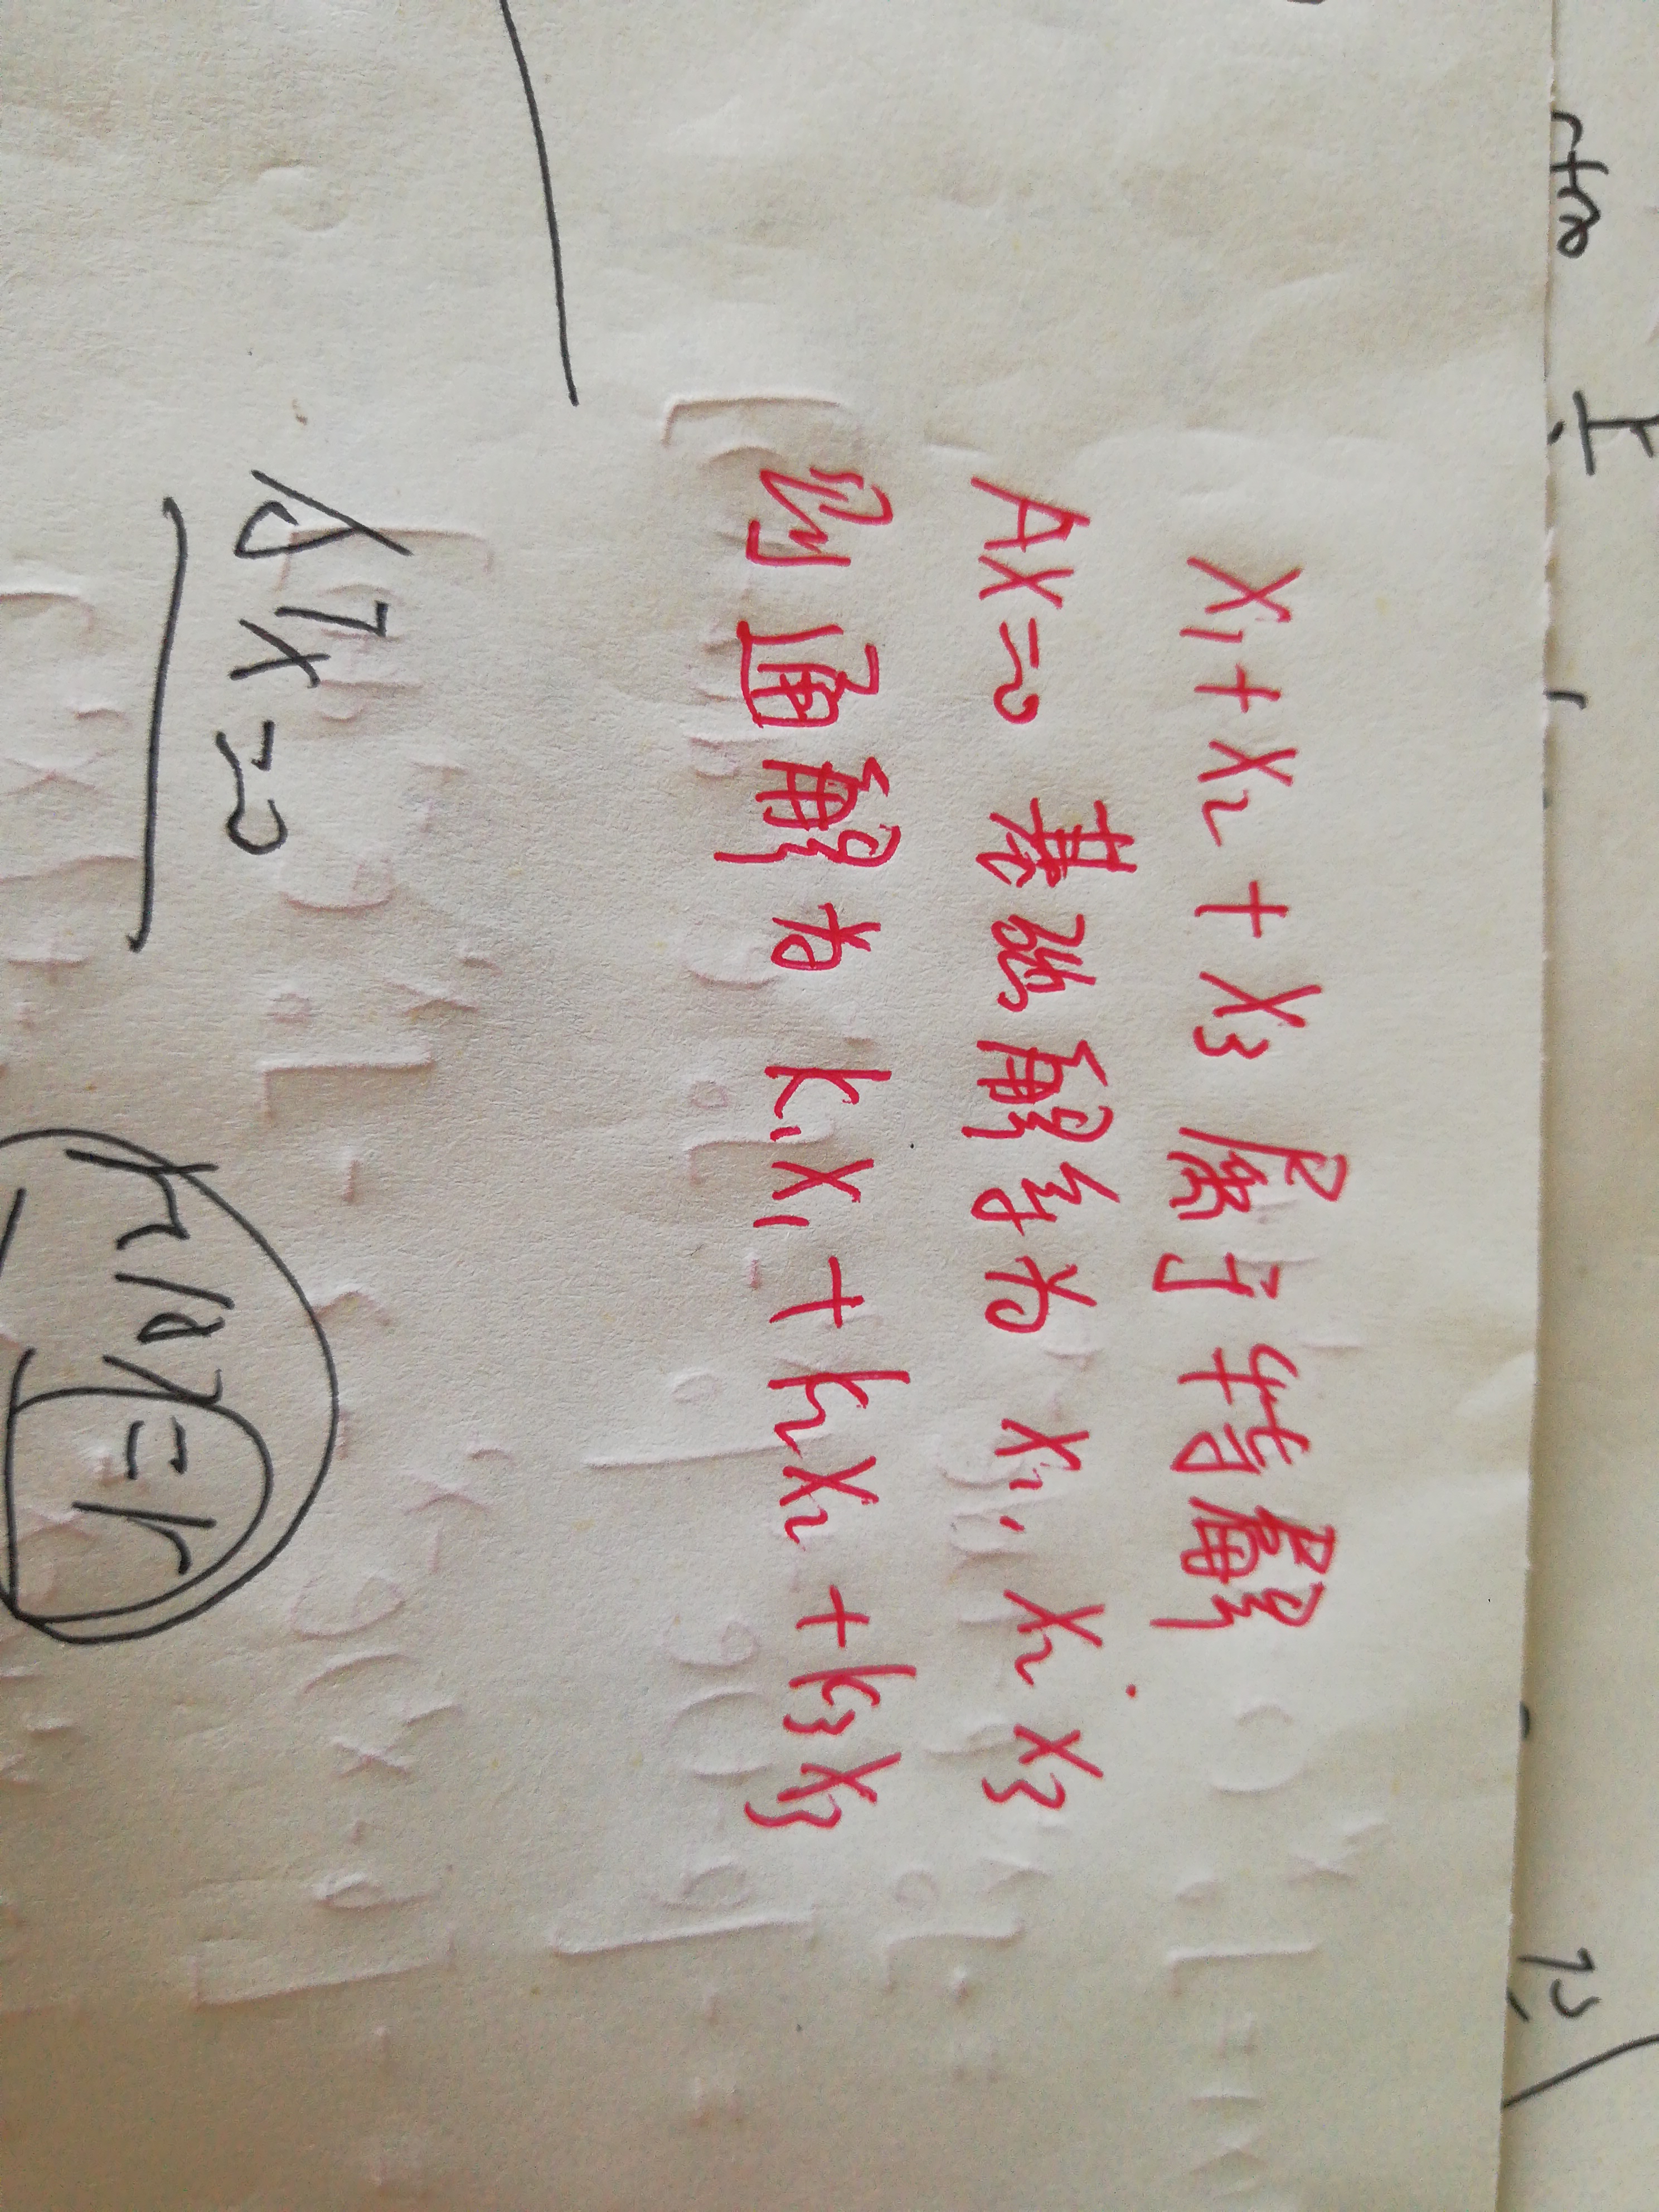 X₁+X₂+X₃ 属于特解
AX=0 基础解系为 X₁, X₂ X₃
则通解为 k₁X₁+k₂X₂+k₃X₃
BX=0
r(B)=r